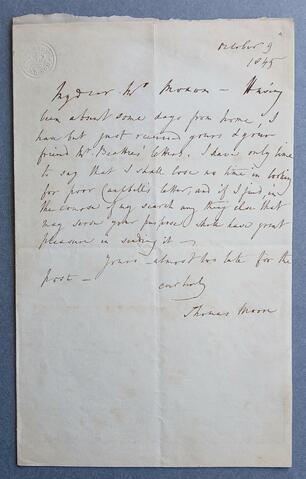 October 9
1845
My dear Mr Moxon - Having
been about some days from home, I
have but just received yours & your
friend Mr Beattie's letters. I have only time
to say that I shall lose no time in looking
for poor Campbell's letter, and if I find, in
the course of my search any thing else that
may serve your purpose shall have great
pleasure in sending it -
Yours - almost too late for the
post -
Thomas Moore